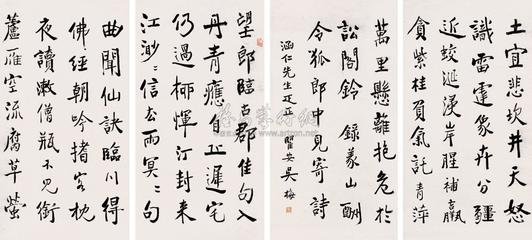 望郎臨古郡佳句入
丹青應自丘遲宅
仍過柳惲汀封來
江渺渺信去雨冥冥句
曲聞仙訣臨川得
佛經朝吟搘客枕
夜讀漱僧瓶不見銜
蘆雁空流腐草螢
土宜悲坎井天怒
識雷霆象卉分疆
近蛟涎浸岸腥補羸
貪紫桂負氣託青萍
萬里懸離抱危於
訟閣鈴 錄義山酬
令狐郎中見寄詩
涵仁先生疋正 瞿安吳梅